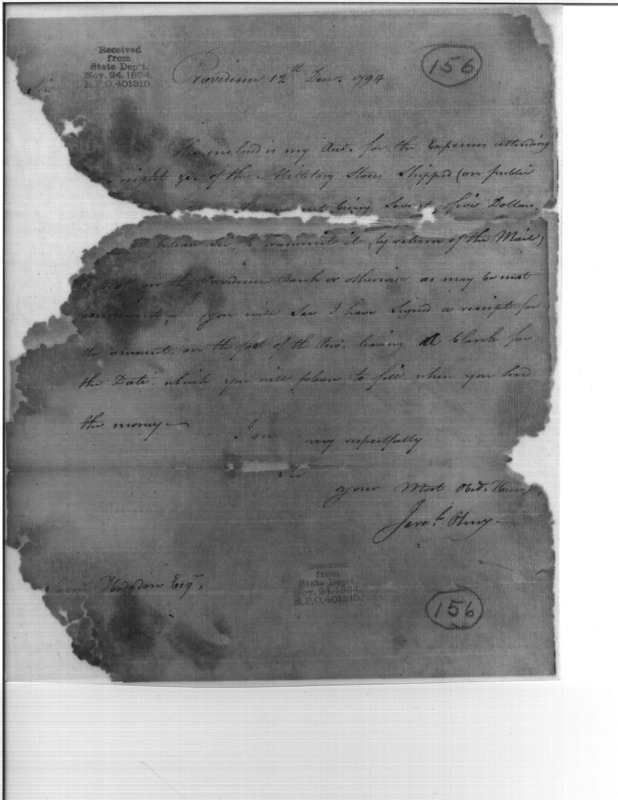 Received
from
State Dep't.
Nov. 24, 1894,
R.P.O. 401310.
156
Providence 12th Decr. 1794
Herein enclosed is my Acct. for the Expences attending
&c. of the Millitory Stores Shipped (on public
being Seven Dollars,
please Sir, to transmit it (by return of the Mail)
on the Providence Bank or otherwise as may be most
convenient, you will See I have Signed a receipt for
the amount on the foot of the Acct. leaving a blank for
the Date, which you will please to fill when you hand
the money
I am very respectfully
your Most Obed. Hum
Jere. Olney
Saml. Hodgdon Esqr.
Received
from
State Dep't.
Nov. 24, 1894,
R.P.O. 401310.
156